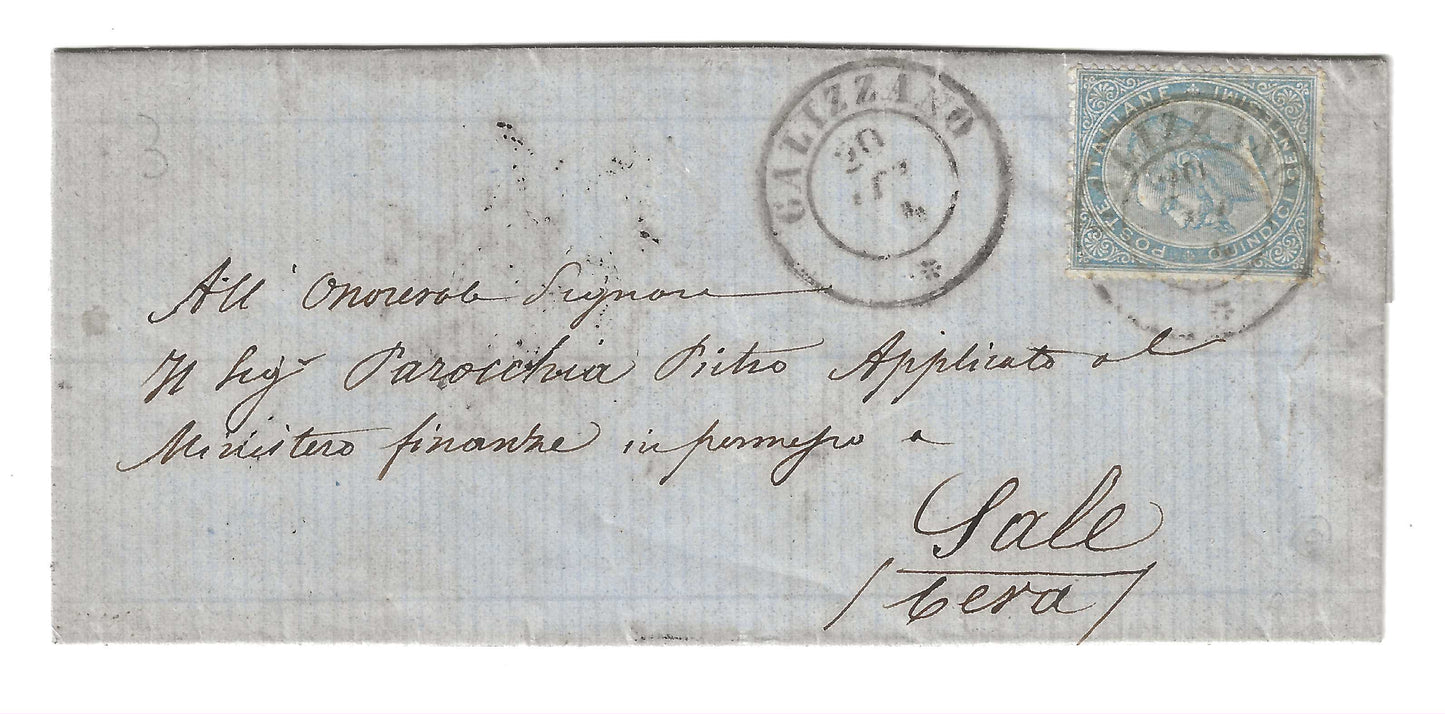 3
CALIZZANO
20
POSTE ITALIANE
QUINDICI CENTESIMI
CALIZZANO
20
All' Onorevole Signore
Il Sigr Parocchia Pietro Applicato al
Ministero finanze in permesso a
Sale
/Ceva/